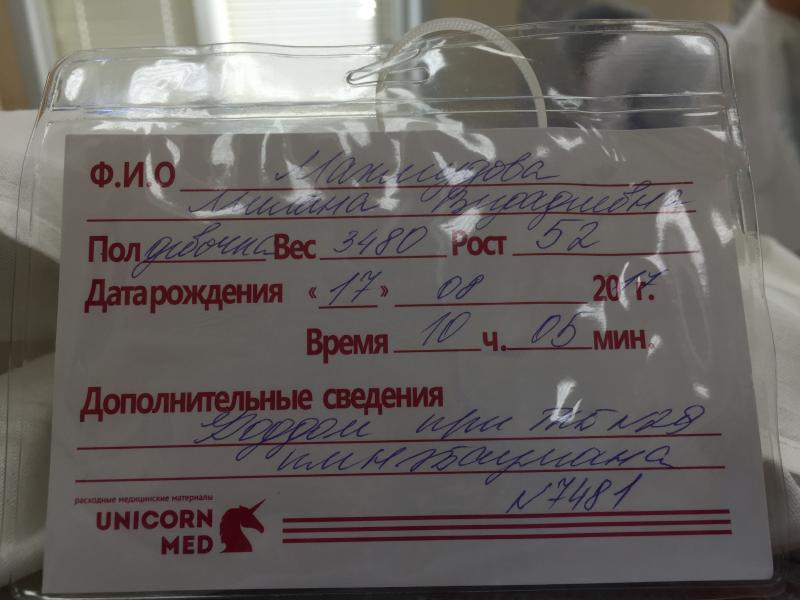 Ф.И.О Махмудова
Милана Видадиевна
Пол девочка Вес 3480 Рост 52
Дата рождения «17» 08 2017г.
Время 10 ч. 05 мин.
Дополнительные сведения
Роддом при ГКБ №29
им Н Э Баумана
N7481
расходные медицинские материалы
UNICORN
MED